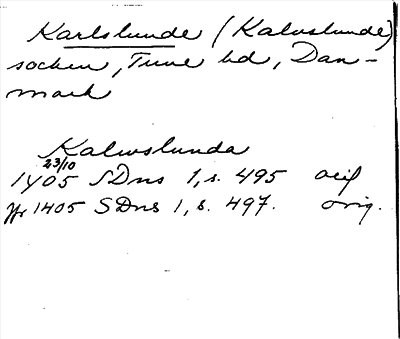 Karlslunde (Kalvslunde)
socken, Tune hd, Dan-
mark
Kalwslunda
23/10
1405 SDns 1, s. 495 orig
1405 SDns 1, s. 497. orig.